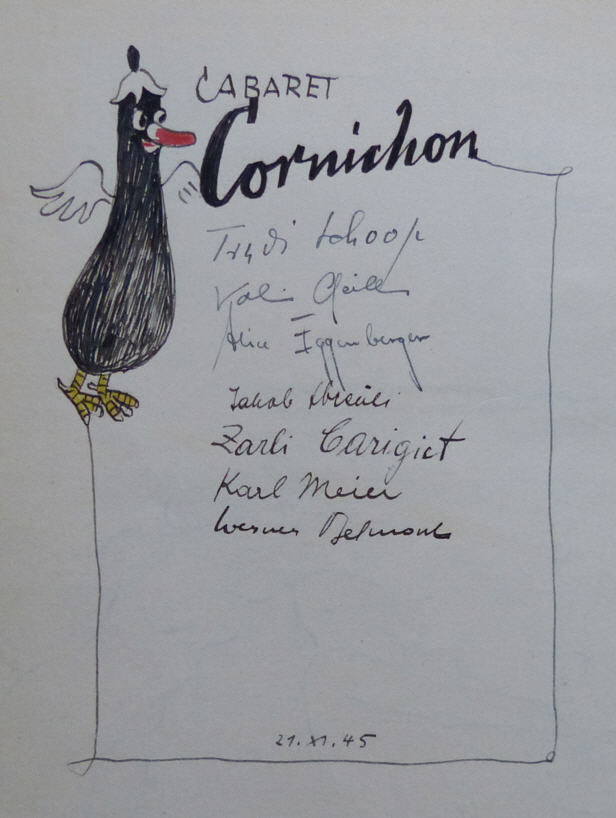 CABARET
Cornichon
Trudi Schoop
Voli Geiler
Alice Eggenberger
Jakob Streuli
Zarli Carigiet
Karl Meier
Werner Belmont
21.XI.45